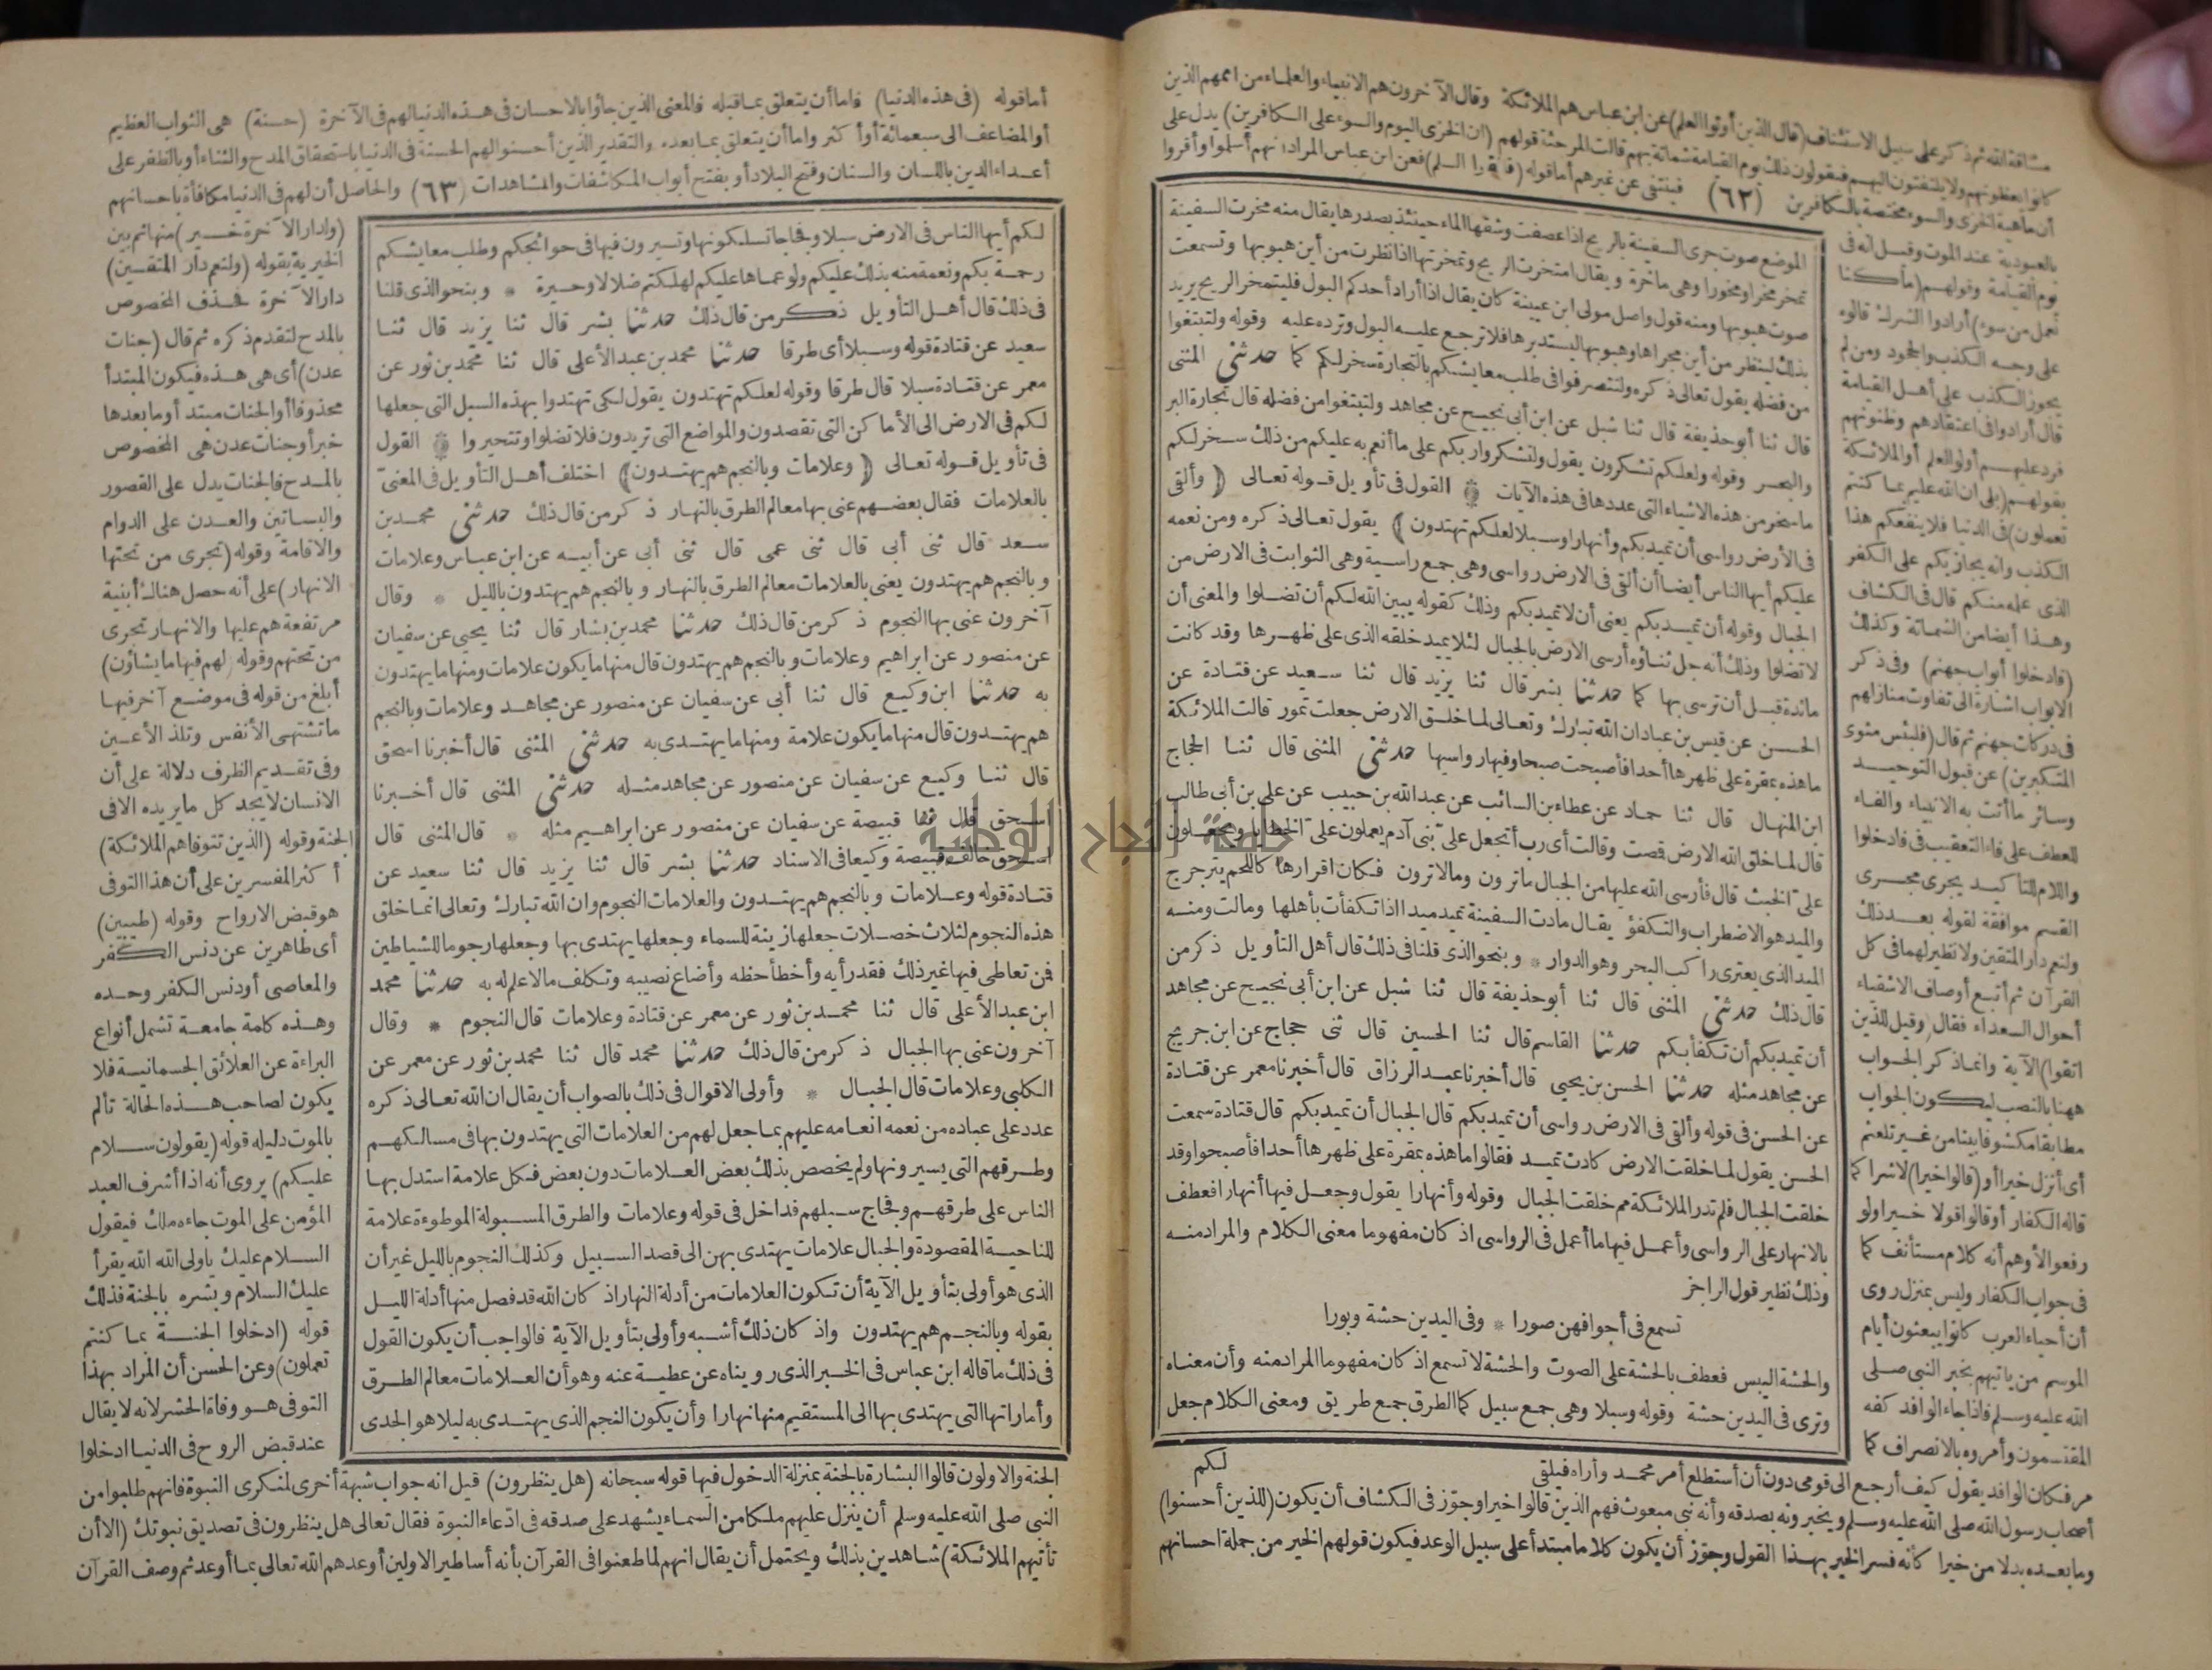 مشاقة الله ثم ذكر على سبيل الاستئناف (قال الذين أوتوا العلم) عن ابن عباس هم الملائكة وقال الآخرون هم الانبياء والعلماء من أممهم الذين
كانوا يعظونهم ولا يلتفتون اليهم فيقولون ذلك يوم القيامة شماتة بهم قالت المرجئة قولهم (ان الخزى اليوم والسوء على الكافرين) يدل على
أن ماهية الخزى والسوء مختصة بالكافرين (٦٢) فينتفى عن غيرهم أما قوله (فألقوا السلم) فعن ابن عباس المراد انهم أسلموا وأقروا
بالعبودية عند الموت وقيل انه فى
يوم القيامة وقولهم (ما كنا
نعمل من سوء) أرادوا الشرك قالوه
على وجه الكذب والجحود ومن لم
يجوز الكذب على أهل القيامة
قال أرادوا فى اعتقادهم وظنونهم
فرد عليهم أولو العلم أو الملائكة
بقولهم (بلى ان الله عليم بما كنتم
تعملون) فى الدنيا فلا ينفعكم هذا
الكذب وانه يجازيكم على الكفر
الذى علمه منكم قال فى الكشاف
وهذا أيضا من الشماتة وكذلك
(فادخلوا أبواب جهنم) وفى ذكر
الابواب اشارة الى تفاوت منازلهم
فى دركات جهنم ثم قال (فلبئس مثوى
المتكبرين) عن قبول التوحيد
وسائر ما أتت به الانبياء والفاء
للعطف على فاء التعقيب فى فادخلوا
واللام للتأكيد يجرى مجرى
القسم موافقة لقوله بعد ذلك
ولنعم دار المتقين ولا نظير لهما فى كل
القرآن ثم أتبع أوصاف الاشقياء
أحوال السعداء فقال (وقيل للذين
اتقوا) الآية وانما ذكر الجواب
ههنا بالنصب ليكون الجواب
مطابقا مكشوفا بينا من غير تلعثم
أى أنزل خيرا و (قالوا خيرا) لا شرا كما
قاله الكفار أو قالوا قولا خيرا ولو
رفعوا لأوهم أنه كلام مستأنف كما
فى جواب الكفار وليس بمنزل روى
أن أحياء العرب كانوا يبعثون أيام
الموسم من يأتيهم بخبر النبى صلى
الله عليه وسلم فاذا جاء الوافد كفه
المقتسمون وأمروه بالانصراف كما
الموضع صوت جرى السفينة بالريح اذا عصفت وشقها الماء حينئذ بصدرها يقال منه مخرت السفينة
تمخر مخرا ومخورا وهى ماخرة ويقال امتخرت الريح وتمخرتها اذا نظرت من أين هبوبها وتسمعت
صوت هبوبها ومنه قول واصل مولى ابن عيينة كان يقال اذا أراد أحدكم البول فليتمخر الريح يريد
بذلك لينظر من أين مجراها وهبوبها ليستدبرها فلا ترجع عليه البول وترده عليه وقوله ولتبتغوا
من فضله يقول تعالى ذكره ولتتصرفوا فى طلب معايشكم بالتجارة سخر لكم كما حدثنى المثنى
قال ثنا أبو حذيفة قال ثنا شبل عن ابن أبى نجيح عن مجاهد ولتبتغوا من فضله قال تجارة البر
والبحر وقوله ولعلكم تشكرون يقول ولتشكروا ربكم على ما أنعم به عليكم من ذلك سخر لكم
ما سخر من هذه الاشياء التى عددها فى هذه الآيات القول فى تأويل قوله تعالى (وألقى
فى الأرض رواسى أن تميد بكم وأنهارا وسبلا لعلكم تهتدون) يقول تعالى ذكره ومن نعمه
عليكم أيها الناس أيضا أن ألقى فى الارض رواسى وهى جمع راسية وهى الثوابت فى الارض من
الجبال وقوله أن تميد بكم يعنى أن لا تميد بكم وذلك كقوله يبين الله لكم أن تضلوا والمعنى أن
لا تضلوا وذلك أنه جل ثناؤه أرسى الارض بالجبال لئلا يميد خلقه الذى على ظهرها وقد كانت
مائدة قبل أن ترسى بها كما حدثنا بشر قال ثنا يزيد قال ثنا سعيد عن قتادة عن
الحسن عن قيس بن عباد ان الله تبارك وتعالى لما خلق الارض جعلت تمور قالت الملائكة
ما هذه بمقرة على ظهرها أحدا فأصبحت صبحا وفيها رواسيها حدثنى المثنى قال ثنا الحجاج
ابن المنهال قال ثنا حماد عن عطاء بن السائب عن عبد الله بن حبيب عن على بن أبى طالب
قال لما خلق الله الارض قمصت وقالت أى رب أتجعل على بنى آدم يعملون على الخطايا ويجعلون
على الخبث قال فأرسى الله عليها من الجبال ما ترون وما لا ترون فكان اقرارها كاللحم يترجرج
والميد هو الاضطراب والتكفؤ يقال مادت السفينة تميد ميدا اذا تكفأت بأهلها ومالت ومنه
الميد الذى يعترى راكب البحر وهو الدوار * وبنحو الذى قلنا فى ذلك قال أهل التأويل ذكر من
قال ذلك حدثنى المثنى قال ثنا أبو حذيفة قال ثنا شبل عن ابن أبى نجيح عن مجاهد
أن تميد بكم أن تكفأ بكم حدثنا القاسم قال ثنا الحسين قال ثنى حجاج عن ابن جريج
عن مجاهد مثله حدثنا الحسن بن يحيى قال أخبرنا عبد الرزاق قال أخبرنا معمر عن قتادة
عن الحسن فى قوله وألقى فى الارض رواسى أن تميد بكم قال الجبال أن تميد بكم قال قتادة سمعت
الحسن يقول لما خلقت الارض كادت تميد فقالوا ما هذه بمقرة على ظهرها أحدا فأصبحوا وقد
خلقت الجبال فلم تدر الملائكة مم خلقت الجبال وقوله وأنهارا يقول وجعل فيها أنهارا فعطف
بالانهار على الرواسى وأعمل فيها ما أعمل فى الرواسى اذ كان مفهوما معنى الكلام والمراد منه
وذلك نظير قول الراجز
تسمع فى أجوافهن صورا * وفى اليدين حشة وبورا
والحشة اليبس فعطف بالحشة على الصوت والحشة لا تسمع اذ كان مفهوما المراد منه وأن معناه
وترى فى اليدين حشة وقوله وسبلا وهى جمع سبيل كما الطرق جمع طريق ومعنى الكلام جعل
لكم
مر فكان الوافد يقول كيف أرجع الى قومى دون أن أستطلع أمر محمد وأراه فيلقى
أصحاب رسول الله صلى الله عليه وسلم ويخبرونه بصدقه وأنه نبى مبعوث فهم الذين قالوا خيرا وجوّز فى الكشاف أن يكون (للذين أحسنوا)
وما بعده بدلا من خيرا كأنه فسر الخير بهذا القول وجوّز أن يكون كلاما مبتدأ على سبيل الوعد فيكون قولهم الخير من جملة احسانهم
أما قوله (فى هذه الدنيا) فاما أن يتعلق بما قبله فالمعنى الذين جاؤا بالاحسان فى هذه الدنيا لهم فى الآخرة (حسنة) هى الثواب العظيم
أو المضاعف الى سبعمائة أو أكثر واما أن يتعلق بما بعده والتقدير الذين أحسنوا لهم الحسنة فى الدنيا باستحقاق المدح والثناء أو بالظفر على
أعداء الدين باللسان والسنان وفتح البلاد أو بفتح أبواب المكاشفات والمشاهدات (٦٣) والحاصل أن لهم فى الدنيا مكافأة باحسانهم
(ولدار الآخرة خير) منها ثم بين
الخيرية بقوله (ولنعم دار المتقين)
دار الآخرة فحذف المخصوص
بالمدح لتقدم ذكره ثم قال (جنات
عدن) أى هى هذه فيكون المبتدأ
محذوفا أو الجنات مبتدأ وما بعدها
خبر أو جنات عدن هى المخصوص
بالمدح فالجنات يدل على القصور
والبساتين والعدن على الدوام
والاقامة وقوله (تجرى من تحتها
الانهار) على أنه حصل هنالك أبنية
مرتفعة هم عليها والانهار تجرى
من تحتهم وقوله (لهم فيها ما يشاؤن)
أبلغ من قوله فى موضع آخر فيها
ما تشتهى الأنفس وتلذ الأعين
وفى تقديم الظرف دلالة على أن
الانسان لا يجد كل ما يريده الا فى
الجنة وقوله (الذين تتوفاهم الملائكة)
أكثر المفسرين على أن هذا التوفى
هو قبض الارواح وقوله (طيبين)
أى طاهرين عن دنس الكفر
والمعاصى أو دنس الكفر وحده
وهذه كلمة جامعة تشمل أنواع
البراءة عن العلائق الجسمانية فلا
يكون لصاحب هذه الحالة تألم
بالموت دليله قوله (يقولون سلام
عليكم) يروى أنه اذا أشرف العبد
المؤمن على الموت جاءه ملك فيقول
السلام عليك يا ولى الله الله يقرأ
عليك السلام ويبشره بالجنة فذلك
قوله (ادخلوا الجنة بما كنتم
تعملون) وعن الحسن أن المراد بهذا
التوفى هو وفاة الحشر لانه لا يقال
عند قبض الروح فى الدنيا ادخلوا
لكم أيها الناس فى الارض سبلا وفجاجا تسلكونها وتسيرون فيها فى حوائجكم وطلب معايشكم
رحمة بكم ونعمة منه بذلك عليكم ولو عماها عليكم لهلكتم ضلالا وحيرة * وبنحو الذى قلنا
فى ذلك قال أهل التأويل ذكر من قال ذلك حدثنا بشر قال ثنا يزيد قال ثنا
سعيد عن قتادة قوله وسبلا أى طرقا حدثنا محمد بن عبد الأعلى قال ثنا محمد بن ثور عن
معمر عن قتادة سبلا قال طرقا وقوله لعلكم تهتدون يقول لكى تهتدوا بهذه السبل التى جعلها
لكم فى الارض الى الأماكن التى تقصدون والمواضع التى تريدون فلا تضلوا وتتحيروا القول
فى تأويل قوله تعالى (وعلامات وبالنجم هم يهتدون) اختلف أهل التأويل فى المعنىّ
بالعلامات فقال بعضهم عنى بها معالم الطرق بالنهار ذكر من قال ذلك حدثنى محمد بن
سعد قال ثنى أبى قال ثنى عمى قال ثنى أبى عن أبيه عن ابن عباس وعلامات
وبالنجم هم يهتدون يعنى بالعلامات معالم الطرق بالنهار وبالنجم هم يهتدون بالليل * وقال
آخرون عنى بها النجوم ذكر من قال ذلك حدثنا محمد بن بشار قال ثنا يحيى عن سفيان
عن منصور عن ابراهيم وعلامات وبالنجم هم يهتدون قال منها ما يكون علامات ومنها ما يهتدون
به حدثنا ابن وكيع قال ثنا أبى عن سفيان عن منصور عن مجاهد وعلامات وبالنجم
هم يهتدون قال منها ما يكون علامة ومنها ما يهتدى به حدثنى المثنى قال أخبرنا اسحق
قال ثنا وكيع عن سفيان عن منصور عن مجاهد مثله حدثنى المثنى قال أخبرنا
اسحق قال ثنا قبيصة عن سفيان عن منصور عن ابراهيم مثله * قال المثنى قال
اسحق خالف قبيصة وكيعا فى الاسناد حدثنا بشر قال ثنا يزيد قال ثنا سعيد عن
قتادة قوله وعلامات وبالنجم هم يهتدون والعلامات النجوم وان الله تبارك وتعالى انما خلق
هذه النجوم لثلاث خصلات جعلها زينة للسماء وجعلها يهتدى بها وجعلها رجوما للشياطين
فمن تعاطى فيها غير ذلك فقد رأيه وأخطأ حظه وأضاع نصيبه وتكلف ما لا علم له به حدثنا محمد
ابن عبد الأعلى قال ثنا محمد بن ثور عن معمر عن قتادة وعلامات قال النجوم * وقال
آخرون عنى بها الجبال ذكر من قال ذلك حدثنا محمد قال ثنا محمد بن ثور عن معمر عن
الكلبى وعلامات قال الجبال * وأولى الاقوال فى ذلك بالصواب أن يقال ان الله تعالى ذكره
عدد على عباده من نعمه انعامه عليهم بما جعل لهم من العلامات التى يهتدون بها فى مسالكهم
وطرقهم التى يسيرونها ولم يخصص بذلك بعض العلامات دون بعض فكل علامة استدل بها
الناس على طرقهم وفجاج سبلهم فداخل فى قوله وعلامات والطرق المسبولة الموطوءة علامة
للناحية المقصودة والجبال علامات يهتدى بهن الى قصد السبيل وكذلك النجوم بالليل غير أن
الذى هو أولى بتأويل الآية أن تكون العلامات من أدلة النهار اذ كان الله قد فصل منها أدلة الليل
بقوله وبالنجم هم يهتدون واذ كان ذلك أشبه وأولى بتأويل الآية فالواجب أن يكون القول
فى ذلك ما قاله ابن عباس فى الخبر الذى رويناه عن عطية عنه وهو أن العلامات معالم الطرق
وأماراتها التى يهتدى بها الى المستقيم منها نهارا وأن يكون النجم الذى يهتدى به ليلا هو الجدى
الجنة والاولون قالوا البشارة بالجنة بمنزلة الدخول فيها قوله سبحانه (هل ينظرون) قيل انه جواب شبهة أخرى لمنكرى النبوة فانهم طلبوا من
النبى صلى الله عليه وسلم أن ينزل عليهم ملكا من السماء يشهد على صدقه فى ادّعاء النبوة فقال تعالى هل ينظرون فى تصديق نبوتك (الا أن
تأتيهم الملائكة) شاهدين بذلك ويحتمل أن يقال انهم لما طعنوا فى القرآن بأنه أساطير الاولين أوعدهم الله تعالى بما أوعد ثم وصف القرآن
جامعة النجاح الوطنية